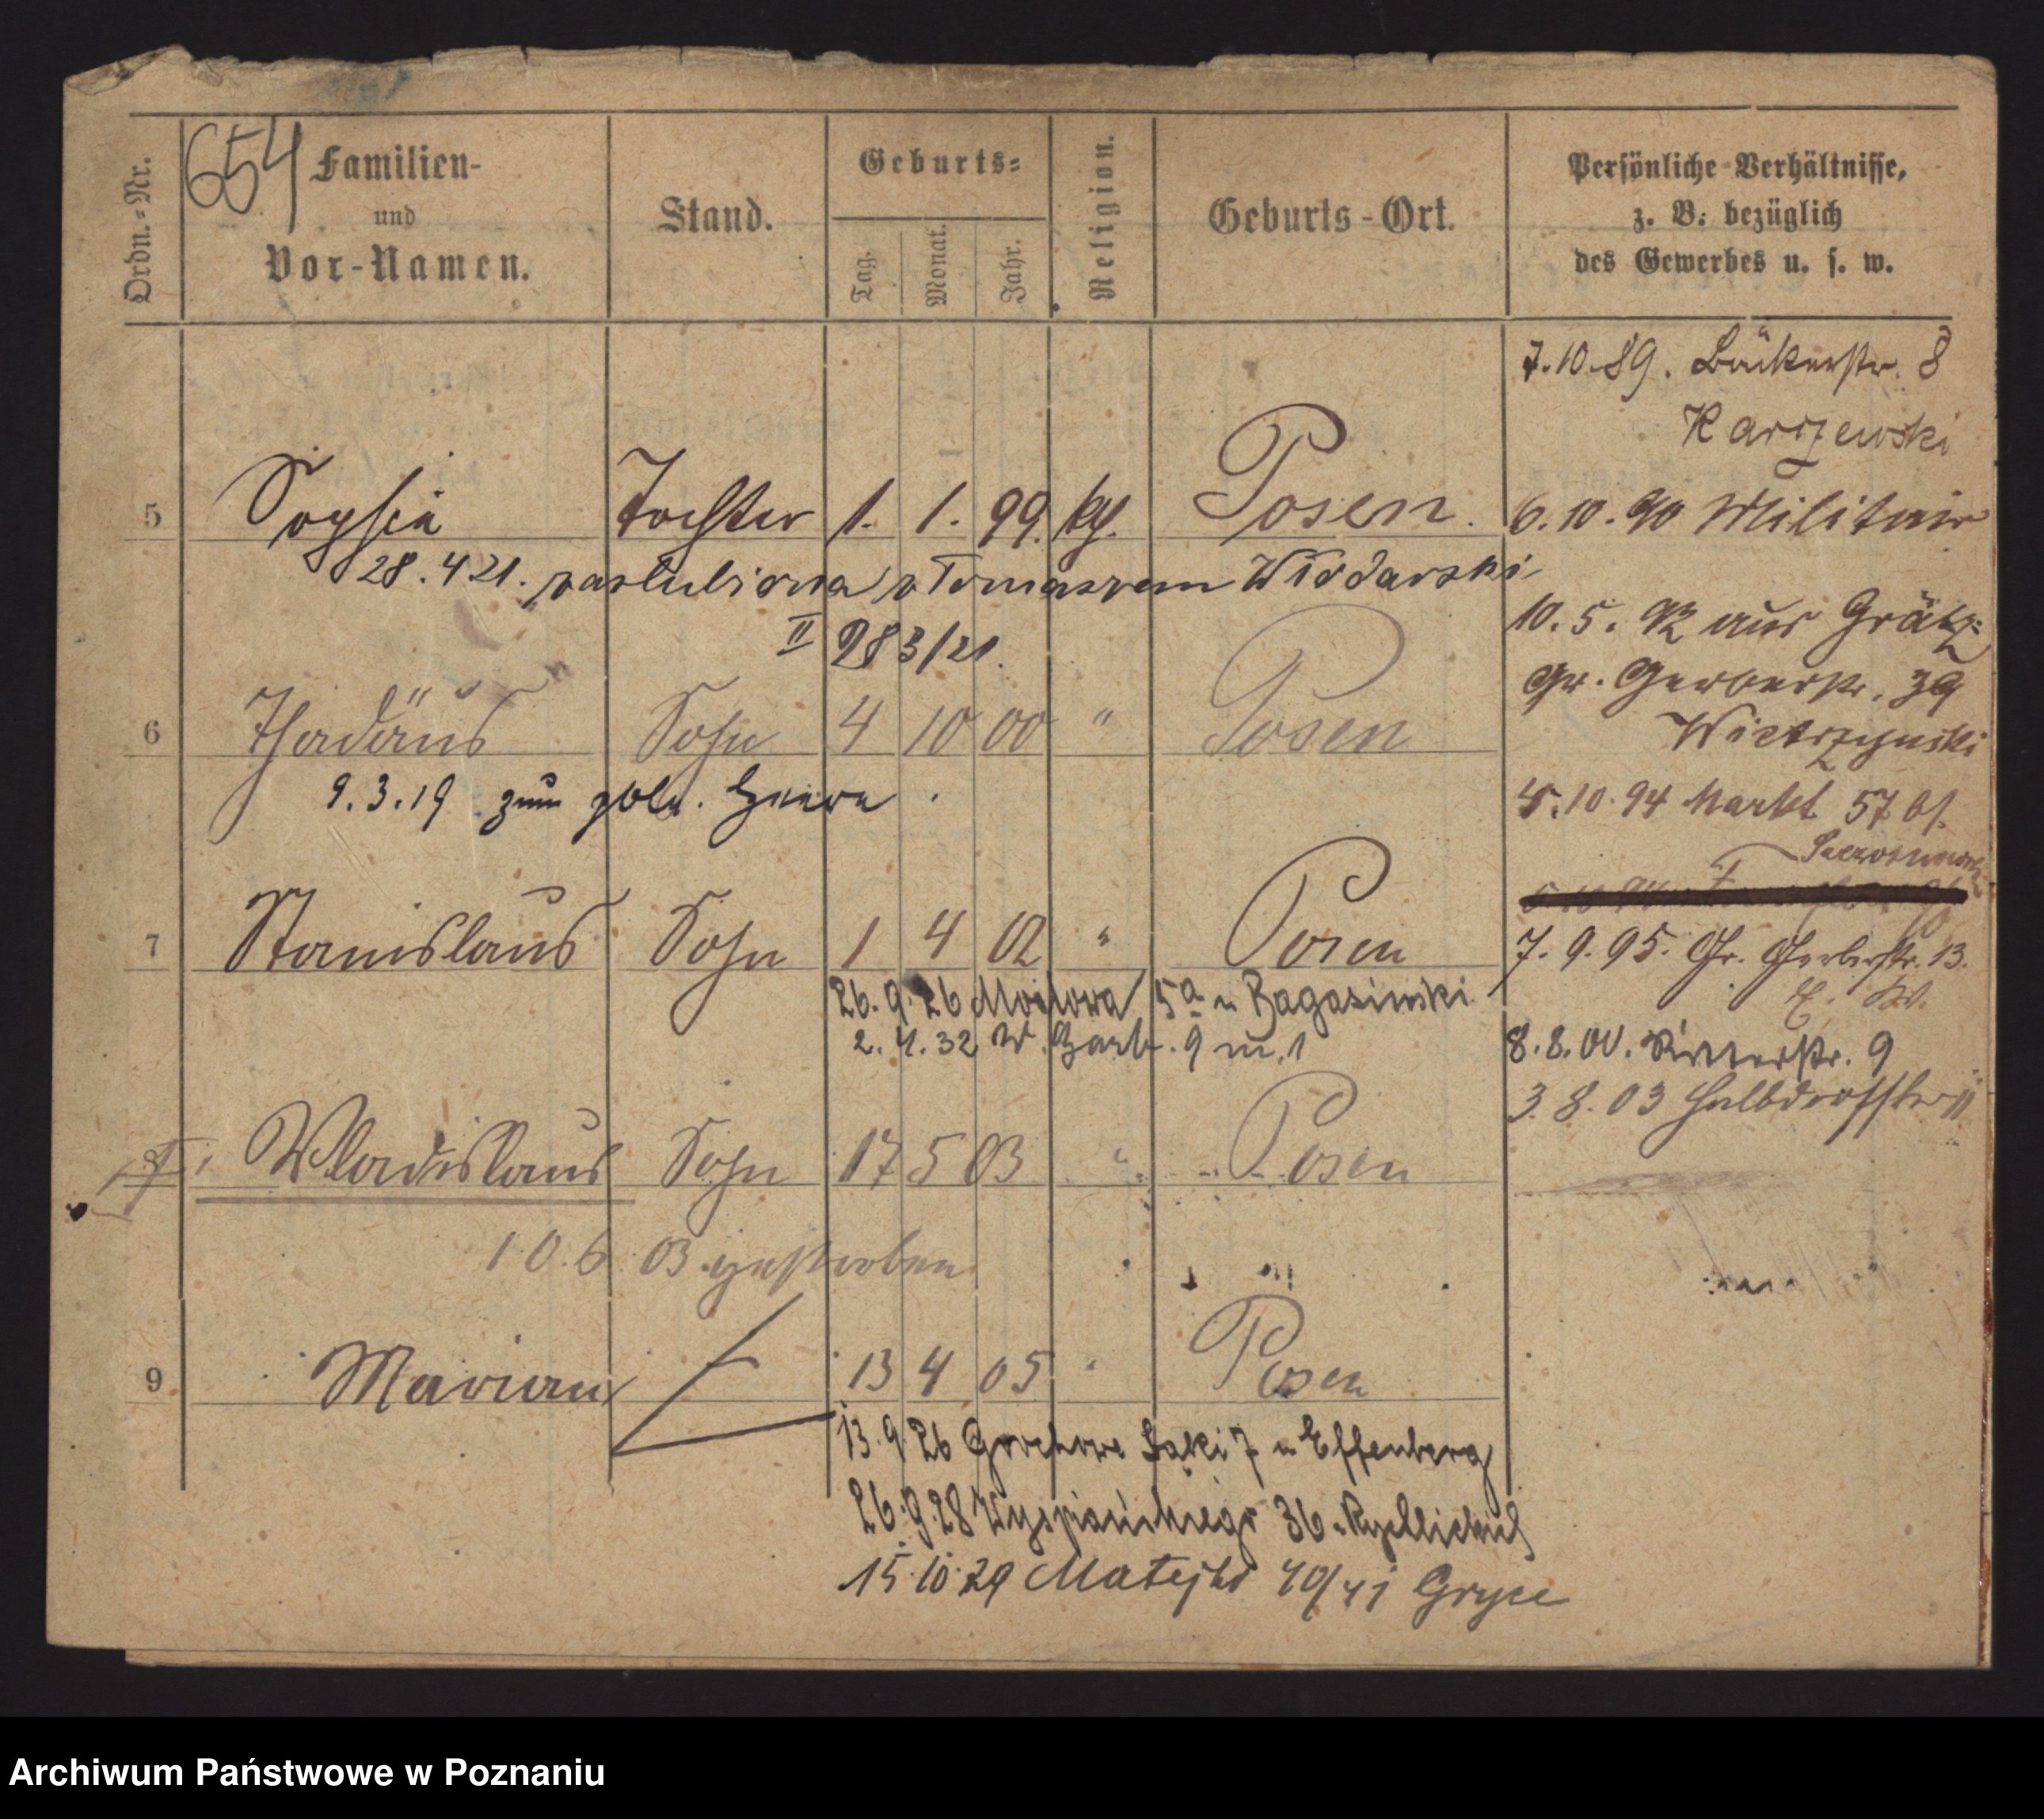 654
Ordn.-Nr.
Familien-
und
Vor-Namen.
Stand.
Geburts-
Tag.
Monat.
Jahr.
Religion.
Geburts-Ort.
Persönliche Verhältnisse,
z. B. bezüglich
des Gewerbes u. s. w.
7.10.89. Bäckerstr. 8
Karzewski
5 Sophia Tochter 1. 1. 99. kg. Posen.
6.10.90 Militair
28.4.21. zaślubiona z Tomaszem Włodarski
II 283/21.
10.5.92 aus Grätz
Gr. Gerberstr. 39
Wietrzynski
6 Thadäus Sohn 4 10 00 " Posen
9.3.19 zum poln. Heere.
5.10.94 Markt 57 bf.
7 Stanislaus Sohn 1 4 02 " Posen
7.9.95. Gr. Gerberstr. 13.
26.9.26 Mostowa 5a u Bagasinski
2.4.32 W. Garb. 9 m. 1
8.8.00. Ritterstr. 9
3.8.03 Halbdorfstr 11
Wladislaus Sohn 17 5 03 " Posen
10.6 03 gestorben
9 Marian 13 4 05 " Posen
13.9.26 Grochowe Łąki 7 u Effenberg
26.9.28 Wyspiańskiego 36
15.10.29 Matejki 40/41 Gryce
Archiwum Państwowe w Poznaniu